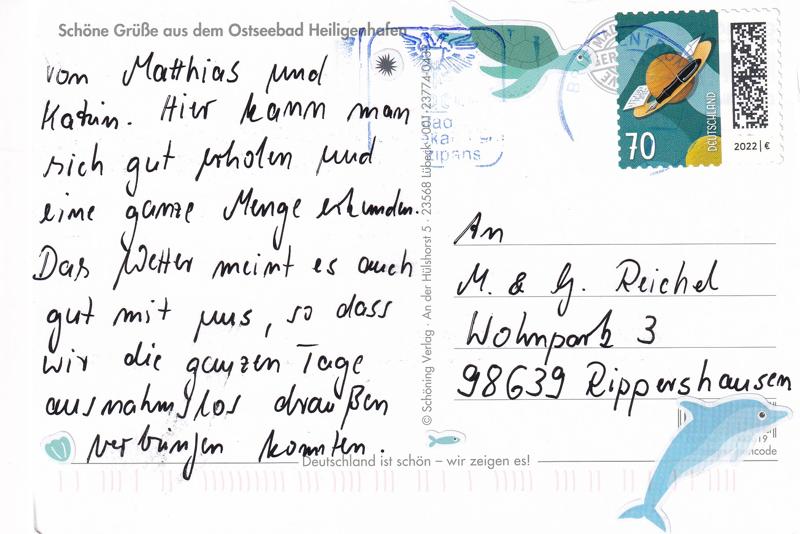 Schöne Grüße aus dem Ostseebad Heiligenhafen
von Matthias und
Katrin. Hier kann man
sich gut erholen und
eine ganze Menge erkunden.
Das Wetter meint es auch
gut mit uns, so dass
wir die ganzen Tage
ausnahmslos draußen
verbringen konnten.
Deutschland ist schön – wir zeigen es!
© Schöning Verlag · An der Hülshorst 5 · 23568 Lübeck
70
DEUTSCHLAND
2022 | €
An
M. & G. Reichel
Wohnpark 3
98639 Rippershausen